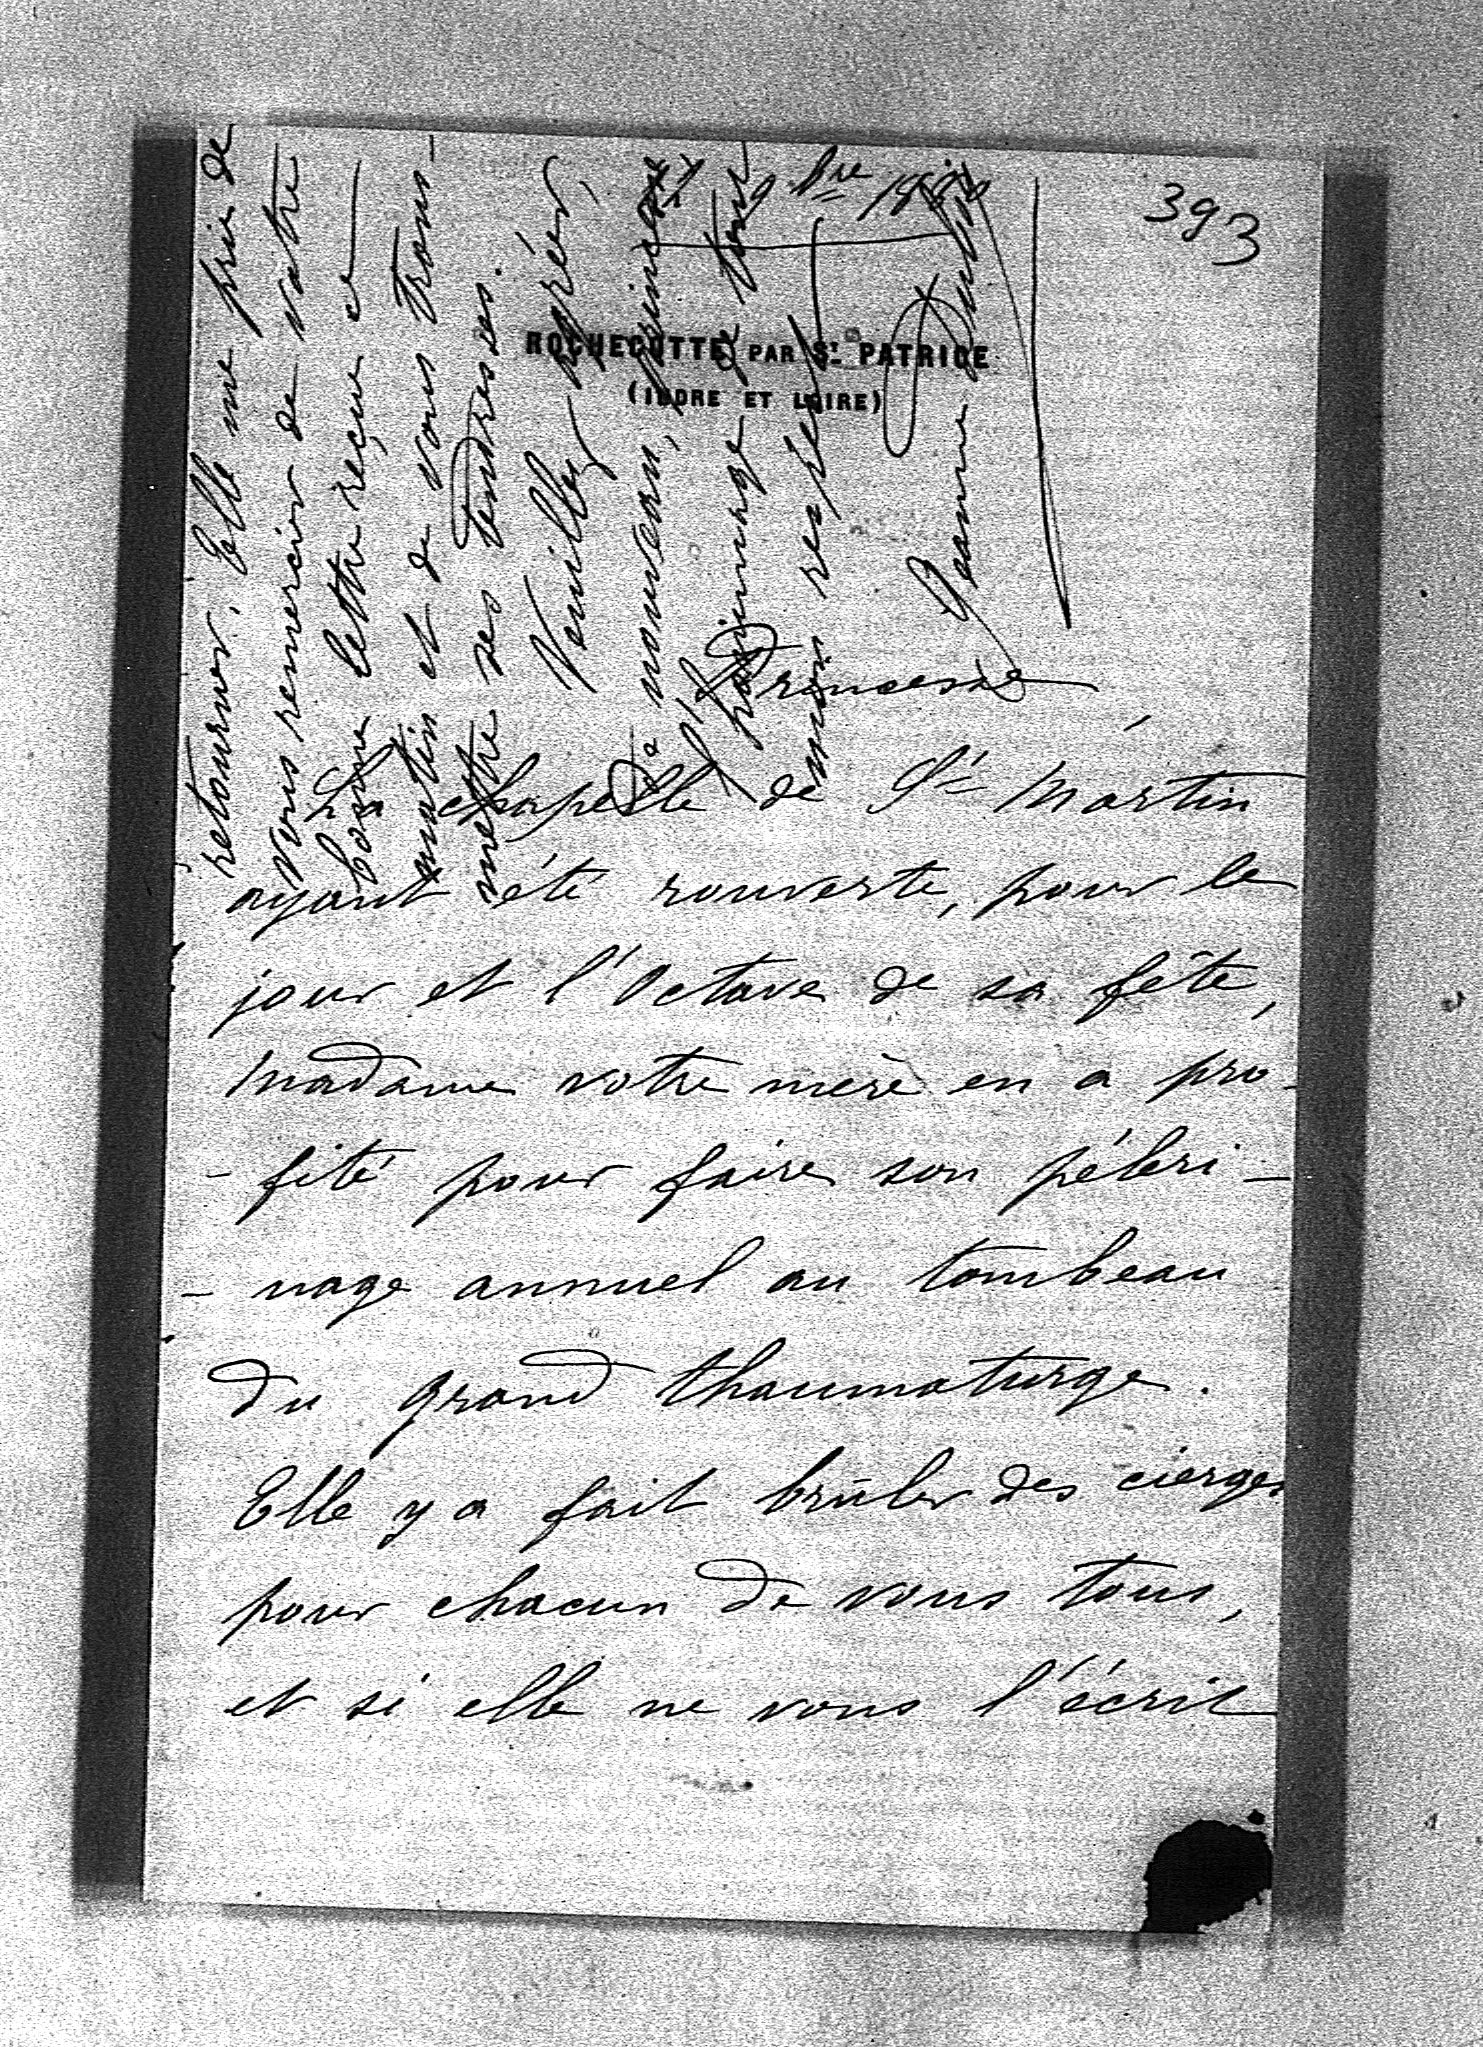 393
9bre 18
ROCHECOTTE PAR ST. PATRICE
(INDRE ET LOIRE)
Princesse
La chapelle de St Martin
ayant été rouverte, pour le
jour et l'Octave de sa fête,
Madame votre mère en a pro-
-fité pour faire son péleri-
-nage annuel au tombeau
du grand thaumaturge.
Elle y a fait brûler des cierges
pour chacun de vous tous,
et si elle ne vous l'écrit
retourner. Elle me prie de
vous remercier de votre
bonne lettre reçue ce
matin et de vous trans-
mettre ses tendresses.
Veuillez agréer,
de nouveau, princesse
l'hommage de tout
mon respect
Jeanne